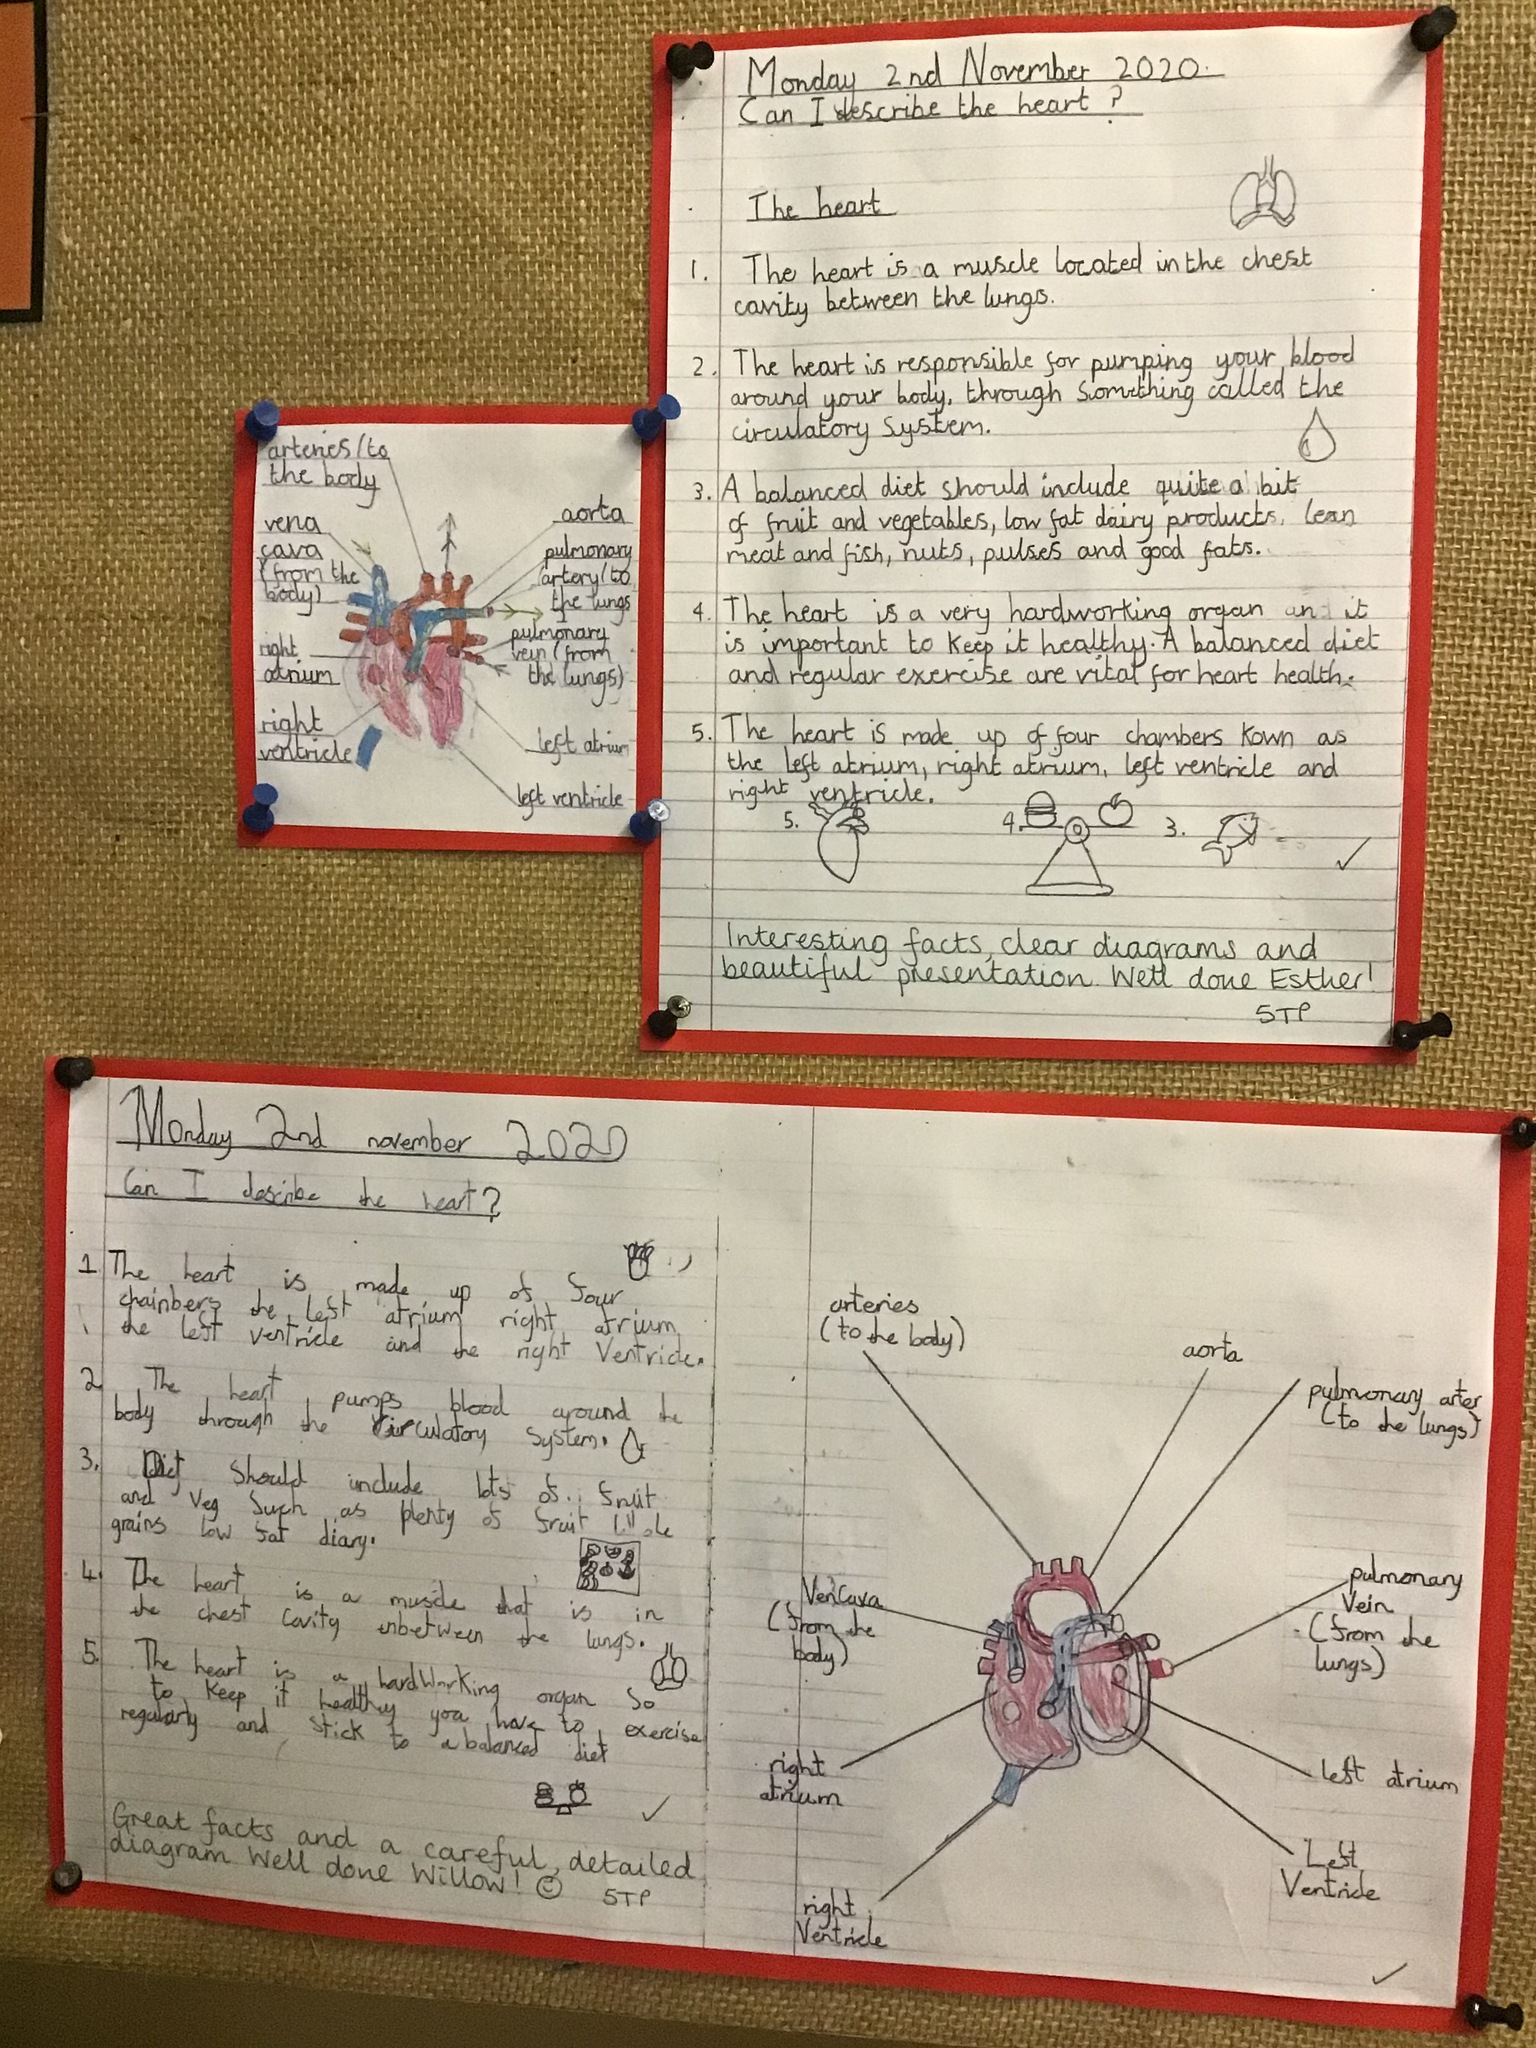 Monday 2nd November 2020.
Can I describe the heart?
The heart
1. The heart is a muscle located in the chest
cavity between the lungs.
2. The heart is responsible for pumping your blood
around your body, through something called the
circulatory system.
3. A balanced diet should include quite a bit
of fruit and vegetables, low fat dairy products, lean
meat and fish, nuts, pulses and good fats.
4. The heart is a very hardworking organ and it
is important to keep it healthy. A balanced diet
and regular exercise are vital for heart health.
5. The heart is made up of four chambers kown as
the left atrium, right atrium, left ventricle and
right ventricle.
5. 4. 3.
Interesting facts, clear diagrams and
beautiful presentation. Well done Esther!
STP
arteries (to
the body
vena
cava
(from the
body)
right
atrium
right
ventricle
aorta
pulmonary
artery (to
the lungs
pulmonary
vein (from
the lungs)
left atrium
left ventricle
Monday 2nd november 2020
Can I describe the heart?
1 The heart is made up of four
chainbers the left atrium right atrium
the left ventricle and the right Ventricle.
2 The heart pumps blood around the
body through the circulatory system.
3. Diet should include lots of fruit
and veg such as plenty of fruit
grains low fat diary.
4. The heart is a muscle that is in
the chest cavity inbetween the lungs.
5. The heart is a hardworking organ so
to keep it healthy you have to exercise
regularly and stick to a balanced diet
Great facts and a careful, detailed
diagram Well done Willow! ☺
STP
arteries
(to the body)
aorta
pulmonary arter
(to the lungs)
Vencava
(from the
body)
pulmonary
Vein
(from the
lungs)
right
atrium
left atrium
Left
Ventricle
right
Ventricle